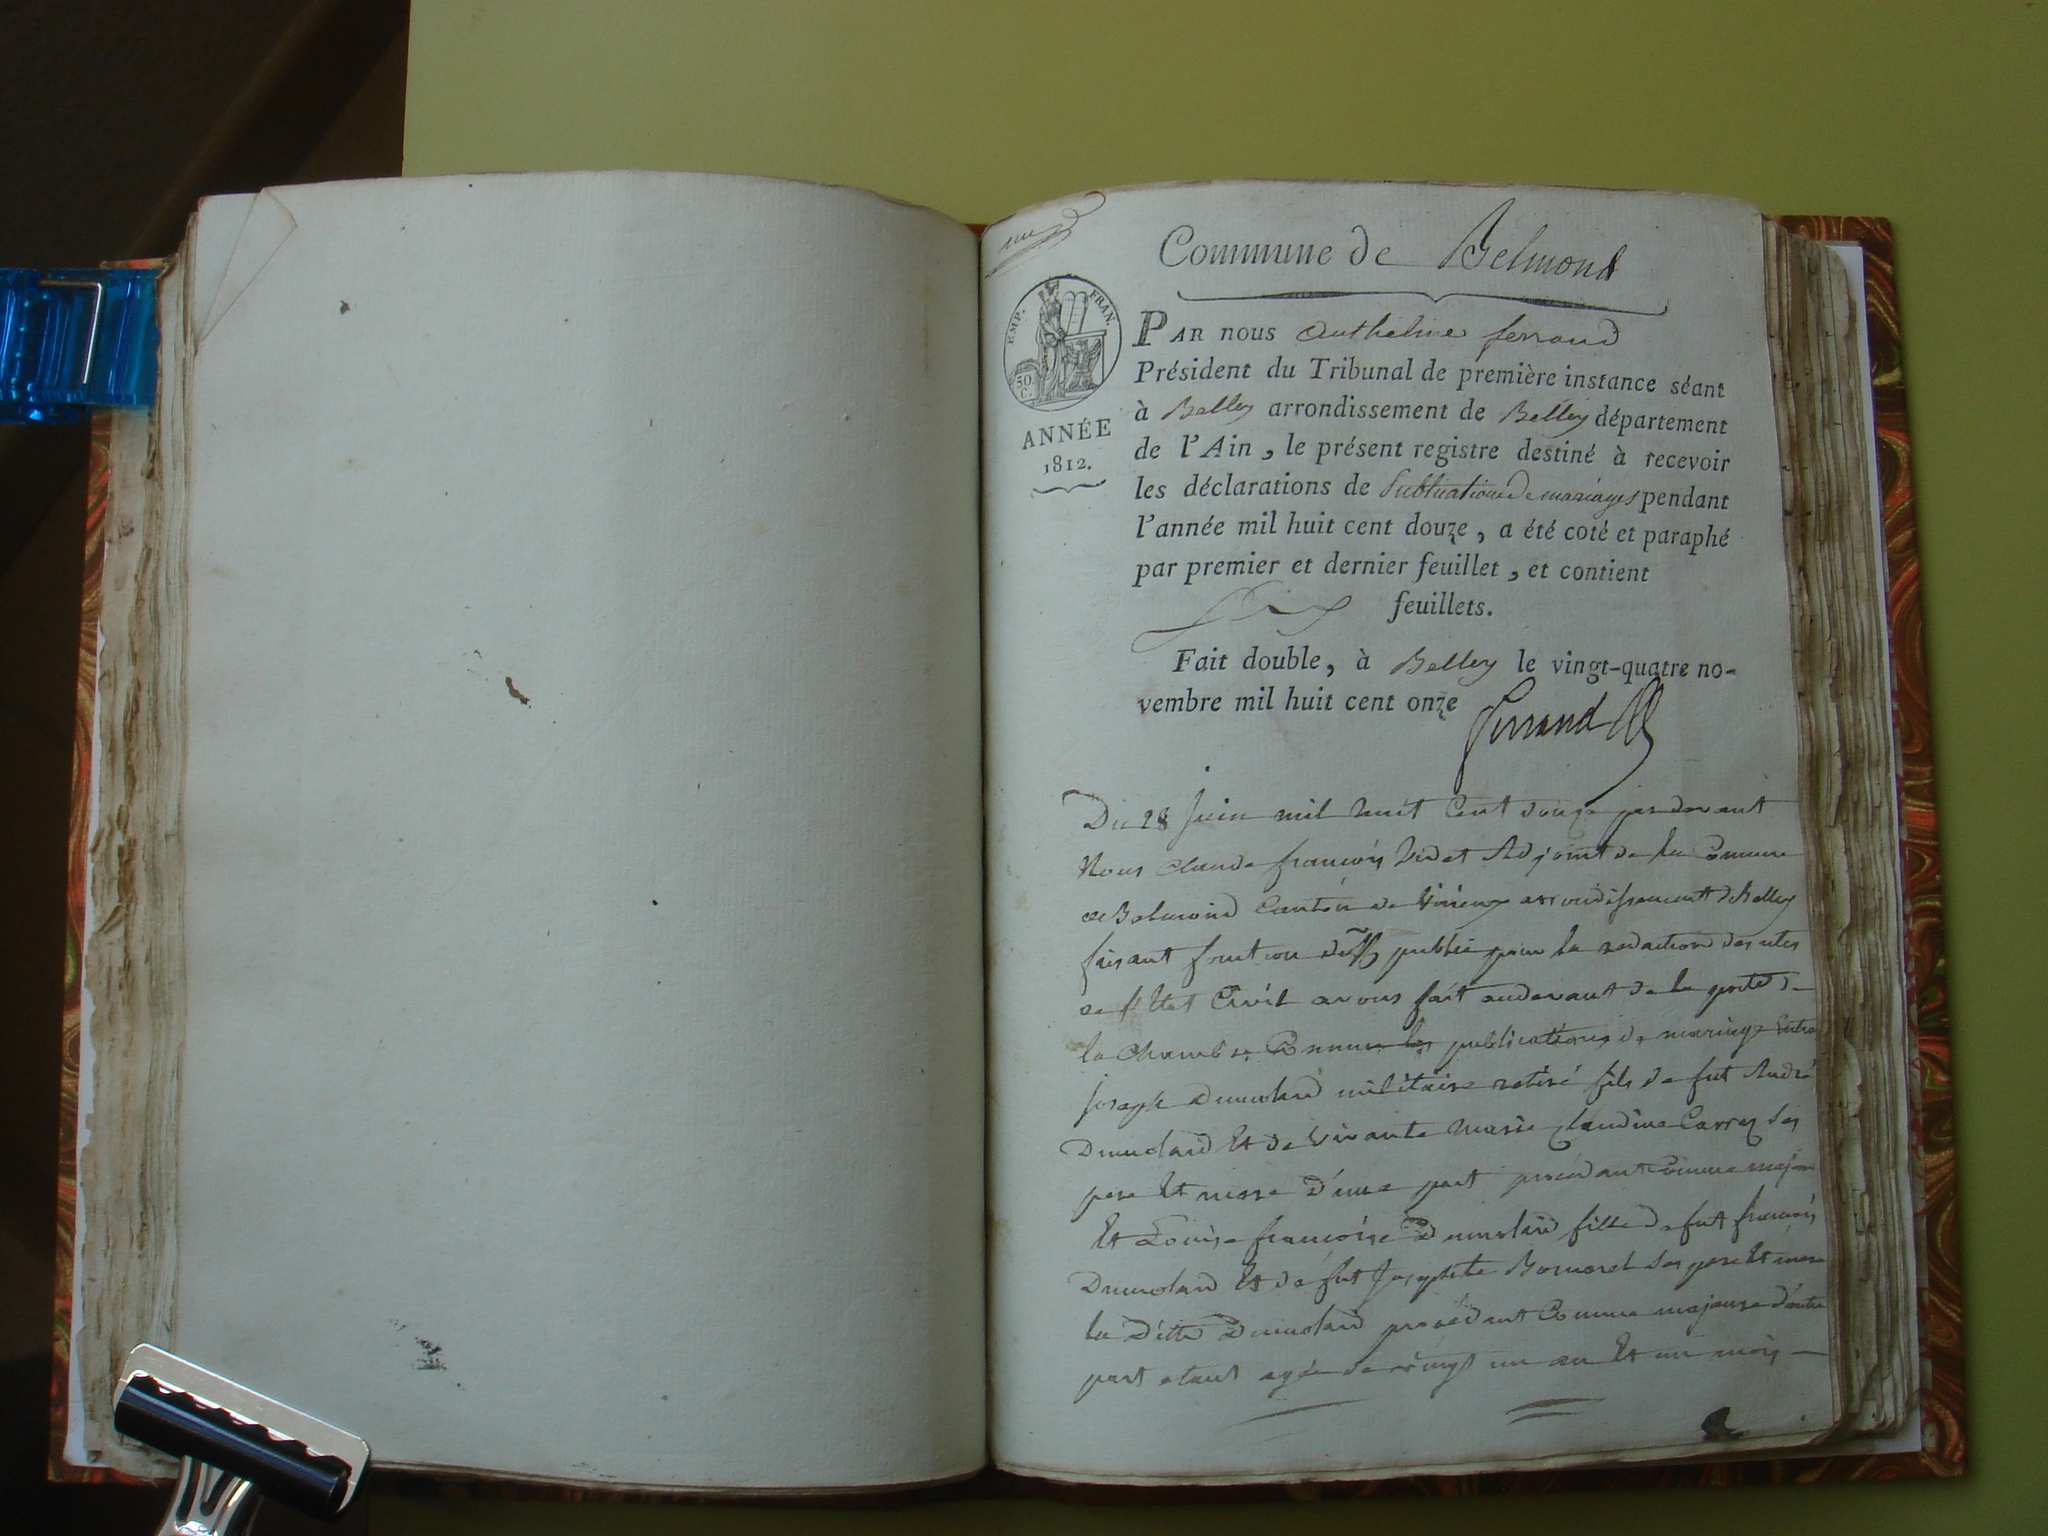 Commune de Belmond
EMP. FRAN.
50
C.
ANNÉE
1812.
PAR nous Anthelme ferrand
Président du Tribunal de première instance séant
à Belley arrondissement de Belley département
de l'Ain, le présent registre destiné à recevoir
les déclarations de Publications de mariages pendant
l'année mil huit cent douze, a été coté et paraphé
par premier et dernier feuillet, et contient
six feuillets.
Fait double, à Belley le vingt-quatre no-
vembre mil huit cent onze ferrand
Du 28 Juin mil huit Cent douze par devant
Nous Claude françois Adjoint de la Comune
de Belmond Canton de Virieux arrondissement de Belley
faisant fonction public pour la redaction des
de l'Etat Civil avons fait audevant de la porte de
la Chambre Comune les publications de mariage Entre
Joseph Dumolard militaire retiré fils de fut André
Dumolard Et de vivante Marie Claudine Carrez Ses
pere Et mere d'une part Comme majeur
Et Louise françoise Dumolard fille de fut françois
Dumolard Et de fut Josephte Bornarel Ses pere Et mere
la ditte Dumolard procédant Comme majeure d'autre
part etant agée de vingt un an Et un mois